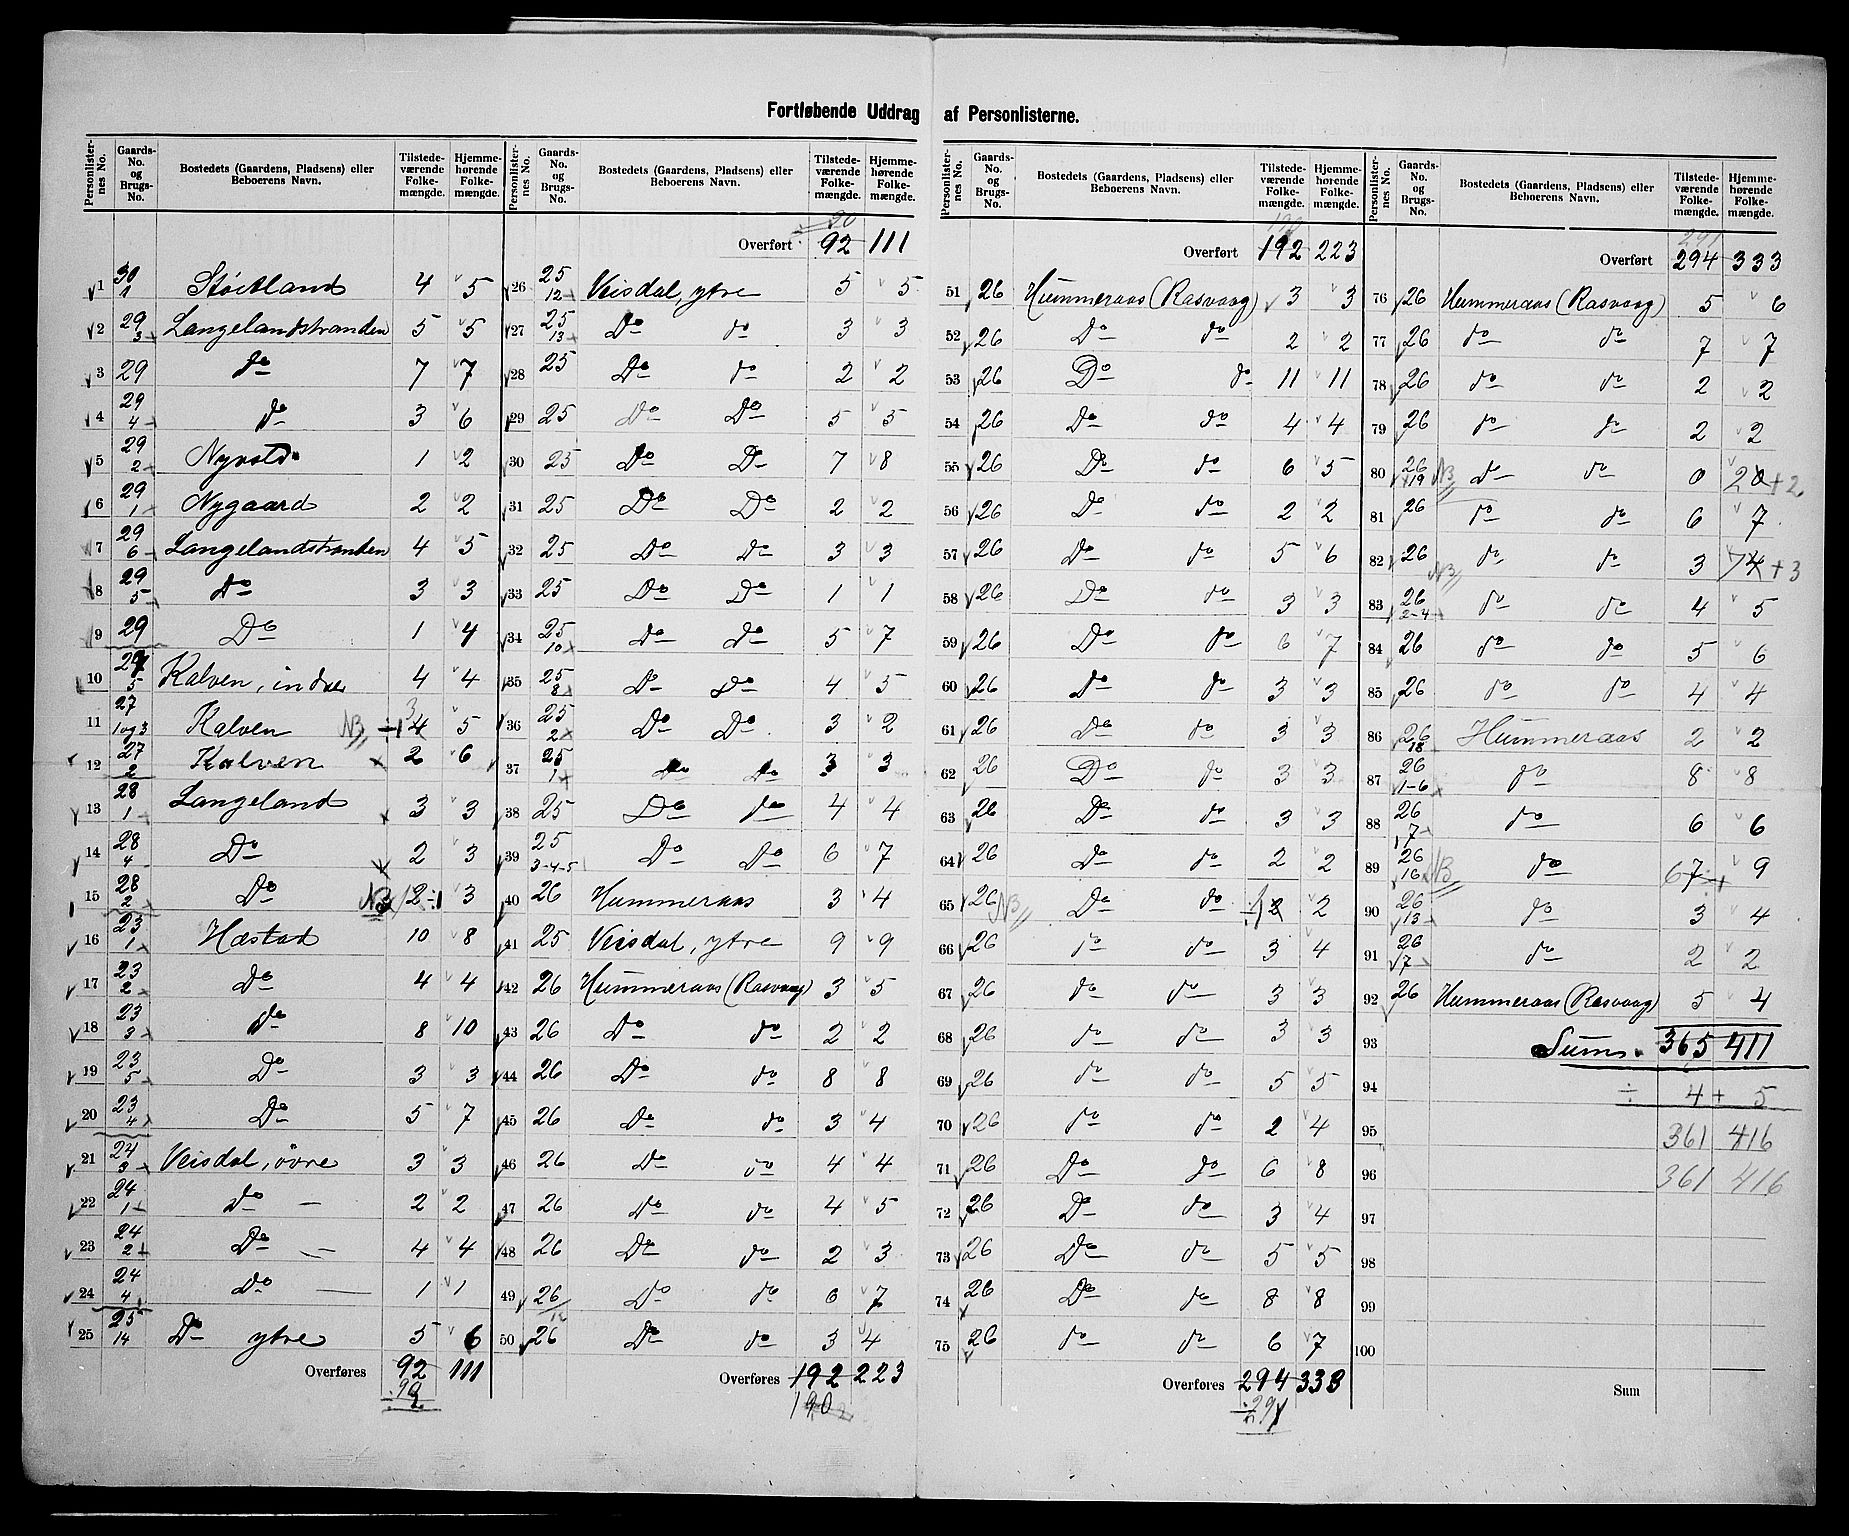 Fortløbende Uddrag af Personlisterne.
Personlister-nes No. Gaards-No. og Brugs-No. Bostedets (Gaardens, Pladsens) eller Beboerens Navn. Tilstede-værende Folke-mængde. Hjemme-hørende Folke-mængde.
1 30/1 Støitland 4 5
2 29/3 Langelandstranden 5 5
3 29 do 7 7
4 29/4 do 3 6
5 29/2 Nyvold 1 2
6 29/1 Nygaard 2 2
7 29/6 Langelandstranden 4 5
8 29/5 Do 3 3
9 29 Do 1 4
10 27/5 Kalven, indre 4 4
11 27/1 og 3 Kalven NB ÷1 4 3 5
12 27/2 Kalven 2 6
13 28/1 Langeland 3 3
14 28/4 Do 2 3
15 28/2 Do NB 2 ÷1 3
16 23/1 Hæstad 10 8
17 23/2 Do 4 4
18 23/3 do 8 10
19 23/5 Do 3 3
20 23/4 Do 5 7
21 24/3 Veisdal, øvre 3 3
22 24/1 do — 2 2
23 24/2 Do — 4 4
24 24/4 do — 1 1
25 25/14 Do ytre 5 6
Overføres 92 111
90
Personlister-nes No. Gaards-No. og Brugs-No. Bostedets (Gaardens, Pladsens) eller Beboerens Navn. Tilstede-værende Folke-mængde. Hjemme-hørende Folke-mængde.
90
Overført 92 111
26 25/12 Veisdal, ytre 5 5
27 25/13 Do do 3 3
28 25 Do do 2 2
29 25 Do Do 5 5
30 25 Do Do 7 8
31 25 Do Do 2 2
32 25 Do Do 3 3
33 25 Do Do 1 1
34 25/10 Do do 5 7
35 25/8 Do Do 4 5
36 25/2 Do Do 3 2
37 25/1 Do Do 3 3
38 25 Do do 4 4
39 25/3-4-5 Do Do 6 7
40 26 Hummeraas 3 4
41 25 Veisdal, ytre 9 9
42 26 Hummeraas (Rasvaag) 3 5
43 26 Do do 2 2
44 26 Do do 8 8
45 26 Do do 3 4
46 26 Do do 4 4
47 26 Do do 4 5
48 26 Do do 2 3
49 26/12 Do do 6 7
50 26 Do do 3 4
Overføres 192 223
190
Personlister-nes No. Gaards-No. og Brugs-No. Bostedets (Gaardens, Pladsens) eller Beboerens Navn. Tilstede-værende Folke-mængde. Hjemme-hørende Folke-mængde.
190
Overført 192 223
51 26 Hummeraas (Rasvaag) 3 3
52 26 Do do 2 2
53 26 Do do 11 11
54 26 Do do 4 4
55 26 Do do 6 5
56 26 Do do 2 2
57 26 Do do 5 6
58 26 Do do 3 3
59 26 Do do 6 7
60 26 Do do 3 3
61 26 Do do 3 3
62 26 Do do 3 3
63 26 Do do 3 3
64 26 Do do 2 2
65 26 NB Do do ÷1 2 2
66 26 do do 3 4
67 26 do do 3 3
68 26 do do 3 3
69 26 do do 5 5
70 26 do do 2 4
71 26 Do do 6 8
72 26 Do do 3 4
73 26 Do do 5 5
74 26 Do do 8 8
75 26 do do 6 7
Overføres 294 333
291
Personlister-nes No. Gaards-No. og Brugs-No. Bostedets (Gaardens, Pladsens) eller Beboerens Navn. Tilstede-værende Folke-mængde. Hjemme-hørende Folke-mængde.
291
Overført 294 333
76 26 Hummeraas (Rasvaag) 5 6
77 26 do do 7 7
78 26 do do 2 2
79 26 do do 2 2
80 26/19 NB do do 0 2 0 +2
81 26 do do 6 7
82 26 NB do do 3 7 4 +3
83 26/2-4 do do 4 5
84 26 do do 5 6
85 26 do do 4 4
86 26/18 Hummeraas 2 2
87 26/1-6 do 8 8
88 26/7 do 6 6
89 26/16 NB do 6 7 ÷1 9
90 26/13 do 3 4
91 26/7 do 2 2
92 26 Hummeraas (Rasvaag) 5 4
93 Sum 365 411
94 ÷ 4 + 5
95 361 416
96 361 416
97
98
99
100
Sum